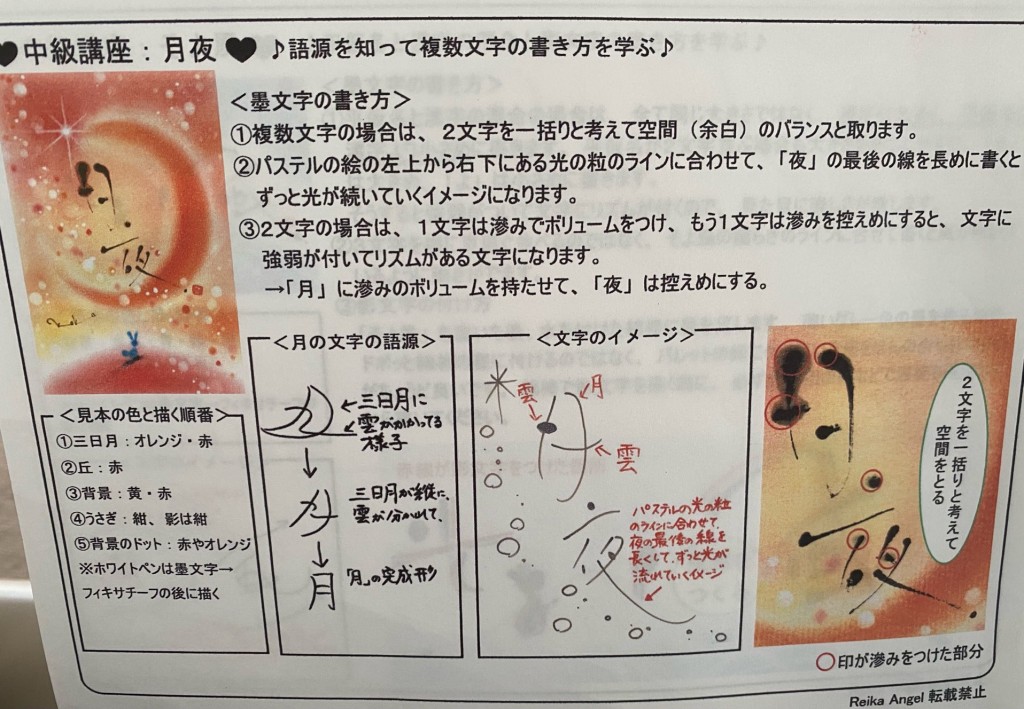 ♥中級講座：月夜♥ ♪語源を知って複数文字の書き方を学ぶ♪
＜墨文字の書き方＞
①複数文字の場合は、２文字を一括りと考えて空間（余白）のバランスと取ります。
②パステルの絵の左上から右下にある光の粒のラインに合わせて、「夜」の最後の線を長めに書くと
ずっと光が続いていくイメージになります。
③２文字の場合は、１文字は滲みでボリュームをつけ、もう１文字は滲みを控えめにすると、文字に
強弱が付いてリズムがある文字になります。
→「月」に滲みのボリュームを持たせて、「夜」は控えめにする。
月
夜
＜見本の色と描く順番＞
①三日月：オレンジ・赤
②丘：赤
③背景：黄・赤
④うさぎ：紺、影は紺
⑤背景のドット：赤やオレンジ
※ホワイトペンは墨文字→
フィキサチーフの後に描く
＜月の文字の語源＞
←三日月に
←雲がかかってる
様子
↓
三日月が縦に、
雲が分かれて、
↓
月
「月」の完成形
＜文字のイメージ＞
雲
月
月
←雲
夜
パステルの光の粒
のラインに合わせて、
夜の最後の線を
長くして、ずっと光が
流れていくイメージ
２文字を一括りと考えて
空間をとる
月
夜
○印が滲みをつけた部分
Reika Angel 転載禁止